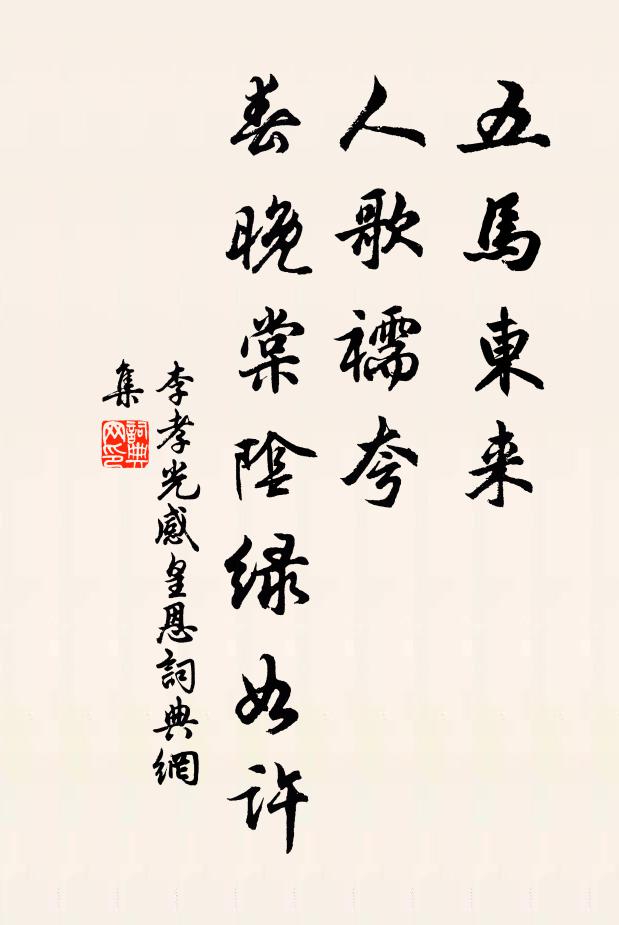 五馬東来
人歌襦夸
春晚棠陰緑如許
李孝光感皇恩詞典網
集
詞典
网印